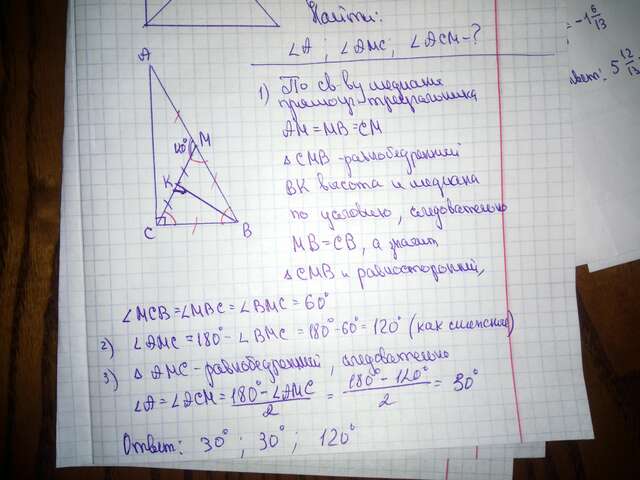 Найти:
∠A ; ∠AMC ; ∠ACM - ?
= -1 6/13
5 12/13
A
M
120°
K
C
B
1) По св-ву медианы
прямоуг. треугольника
AM = MB = CM
△ CMB - равнобедренный
BK высота и медиана
по условию, следовательно
MB = CB, а значит
△ CMB и равносторонний,
∠MCB = ∠MBC = ∠BMC = 60°
2) ∠AMC = 180° - ∠BMC = 180° - 60° = 120° (как смежные)
3) △ AMC - равнобедренный, следовательно
∠A = ∠ACM = (180° - ∠AMC)/2 = (180° - 120°)/2 = 30°
Ответ: 30° ; 30° ; 120°